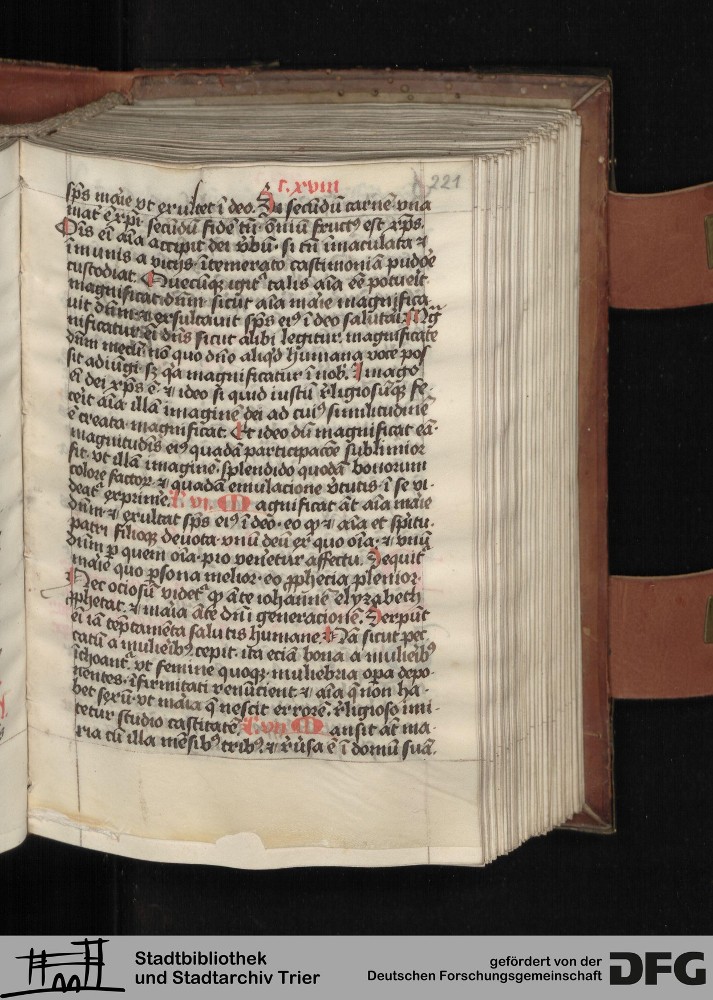 r. xviii
221
sp̄s māie vt exultet ī deo. Si secūdū carnē vna
mat̄ ē xpī secūdū fidē tn̄ · oīm̄ fruct⁹ est xp̄s.
Oīs ei aīa accipit dei v̓bū · si tn̄ īmaculata ⁊
īmunis a vicijs · ītemerato castimoniā pudōe
custodiat. Quecūq; igit᷑ talis aīa eē potueīt
magnificat dūm · sicut aīa māie magnifica
uit dūm ⁊ exsultauit sp̄s ei⁹ ī deo salutāi. Mag̃
nificatur ei dn̄s sicut alibi legitur. magnificate
dūm mecū nō quo dn̄o aliq̄d humana voce pos
sit adiūgi sꝫ q̓a magnificatur ī nob̄. Imago
ei dei xp̄s ē. ⁊ ideo si quid iustū r̓ligiosūq; fe-
ceīt aīa · illā imaginē dei ad cui⁹ similitudinē
ē creata magnificat. Et ideo dū magnificat eā ·
magnitudīs ei⁹ quadā participacōe sublimior
fit. vt illā imaginē splendido quodā bonorum
colore factoꝝ ⁊ quadā emulacione v̓tutis · ī se vi-
deat᷑ exprime. C. vi. Magnificat āt aīa māie
dūm ⁊ exultat sp̄s ei⁹ ī deo · eo ꝙ ⁊ aīa et sp̄itu.
patri filioq; deuota · vnū deū ex quo oīa · ⁊ vnū
dūm ꝑ quem oīa · pio ven̄etur affectu. Sequit᷑
māie quo ꝑsona melior · eo ꝓphecia plenior.
Nec ociosū videt᷑ ꝙ āte iohannē elyzabeth
ꝓphetat · ⁊ maīa āte dn̄i generacionē. Serpūt
ei iā teptamēta salutis humane. Nā sicut pec
catū a mulieīb⁹ cepit · ita eciā bona a mulieīb⁹
īchoant᷑. vt femine quoq; muliebria opa depo-
nentes · īfirmitati renūcient · ⁊ aīa q̄ non ha-
bet sexū · vt maīa q̄ nescit errorē. r̓ligioso imi-
tetur studio castitatē. C. vii. Mansit āt ma-
ria cū illa mēsib⁹ trib⁹ · ⁊ r̓u̓sa ē ī domū suā.
Stadtbibliothek
und Stadtarchiv Trier
gefördert von der
Deutschen Forschungsgemeinschaft
DFG